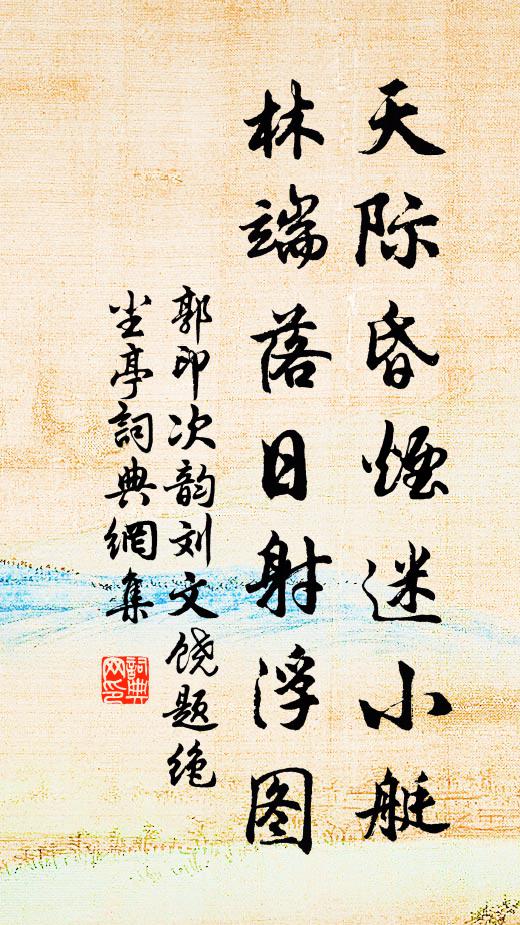 天际昏烟迷小艇
林端落日射浮图
郭印次韵刘文饶题绝
尘亭词典网集
词典网印